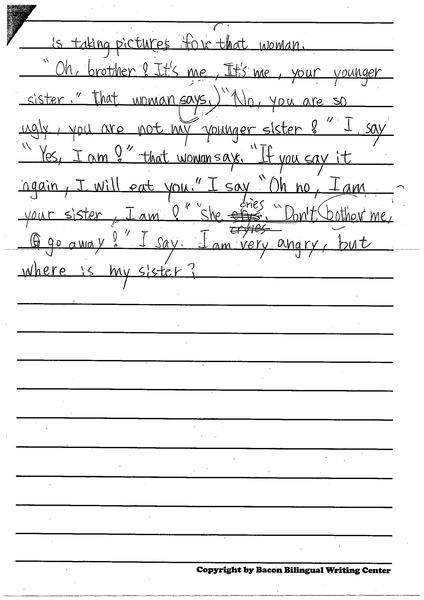 is taking pictures for that woman.
"Oh, brother! It's me, It's me, your younger
sister." that woman says. "No, you are so
ugly, you are not my younger sister!" I say
"Yes, I am!" that woman says. "If you say it
again, I will eat you." I say "Oh no, I am
your sister, I am!" "She cries. "Don't bothour me,
go away!" I say. I am very angry, but
where is my sister?
Copyright by Bacon Bilingual Writing Center